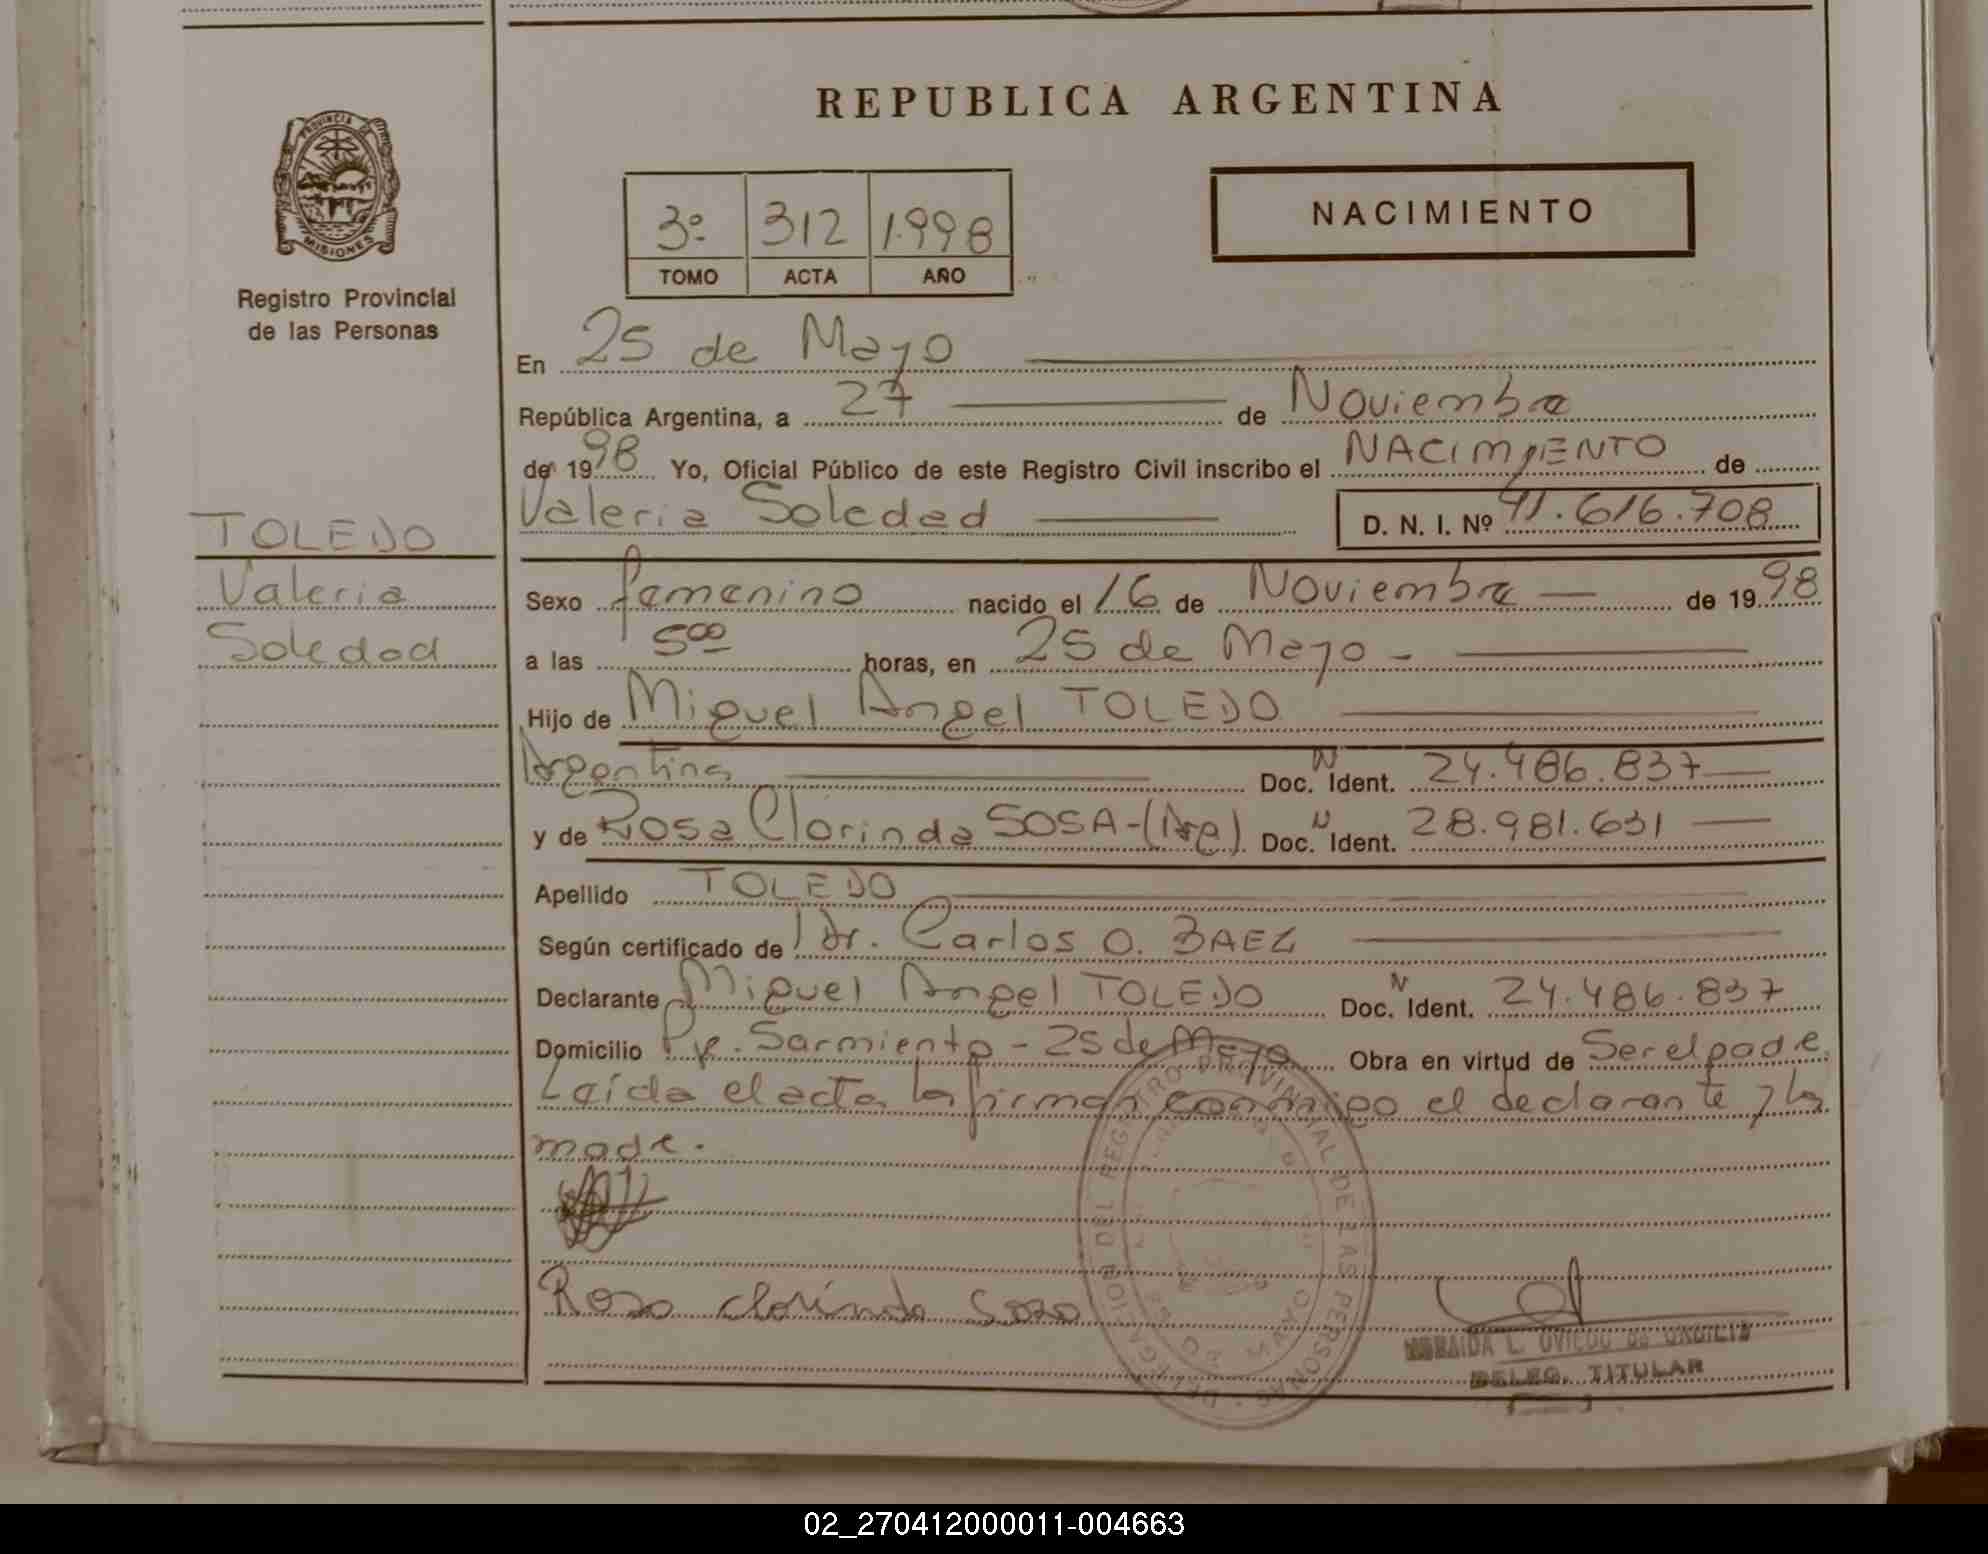 REPUBLICA ARGENTINA
PROVINCIA DE
MISIONES
Registro Provincial
de las Personas
3º 312 1.998
TOMO ACTA AÑO
NACIMIENTO
En 25 de Mayo
República Argentina, a 27 de Noviembre
de 1998 Yo, Oficial Público de este Registro Civil inscribo el NACIMIENTO de
TOLEDO
Valeria
Soledad
Valeria Soledad D. N. I. Nº 41.616.708
Sexo femenino nacido el 16 de Noviembre de 1998
a las 500 horas, en 25 de Mayo -
Hijo de Miguel Angel TOLEDO
Argentina Doc. N Ident. 24.486.837
y de Rosa Clorinda SOSA-(Arg) Doc. N Ident. 28.981.631
Apellido TOLEDO
Según certificado de Dr. Carlos O. BAEZ
Declarante Miguel Angel TOLEDO Doc. N Ident. 24.486.837
Domicilio Pje. Sarmiento - 25 de Mayo Obra en virtud de Ser el padre.
Leída el acta la firman conmigo el declarante y la
madre.
Rosa Clorinda Sosa
DELEGACION DEL REGISTRO PROVINCIAL DE LAS PERSONAS
25 DE MAYO
L. OVIEDO de
DELEG. TITULAR
02_270412000011-004663